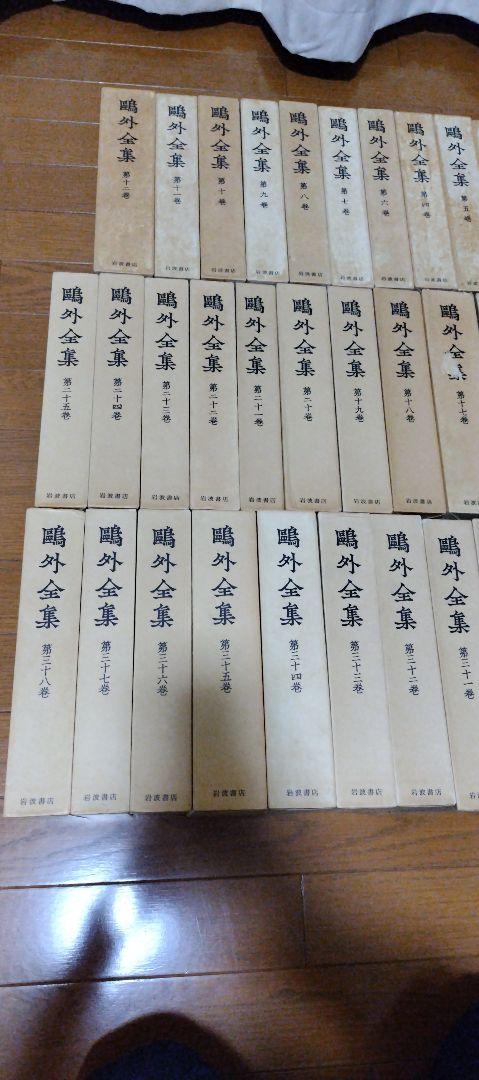 鷗外全集 第十二巻 岩波書店
鷗外全集 第十一巻 岩波書店
鷗外全集 第十巻 岩波書店
鷗外全集 第九巻 岩波書店
鷗外全集 第八巻 岩波書店
鷗外全集 第七巻 岩波書店
鷗外全集 第六巻 岩波書店
鷗外全集 第四巻 岩波書店
鷗外全集 第五巻 岩波書店
鷗外全集 第二十五巻 岩波書店
鷗外全集 第二十四巻 岩波書店
鷗外全集 第二十三巻 岩波書店
鷗外全集 第二十二巻 岩波書店
鷗外全集 第二十一巻 岩波書店
鷗外全集 第二十巻 岩波書店
鷗外全集 第十九巻 岩波書店
鷗外全集 第十八巻 岩波書店
鷗外全集 第十七巻 岩波書店
鷗外全集 第三十八巻 岩波書店
鷗外全集 第三十七巻 岩波書店
鷗外全集 第三十六巻 岩波書店
鷗外全集 第三十五巻 岩波書店
鷗外全集 第三十四巻 岩波書店
鷗外全集 第三十三巻 岩波書店
鷗外全集 第三十二巻 岩波書店
鷗外全集 第三十一巻